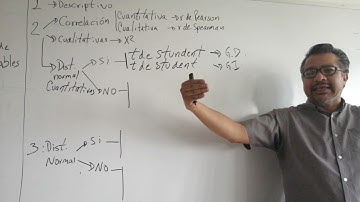 1 → Descriptivo
2 → Correlación Cuantitativa → r de Pearson
Cualitativa → r de Spearman
→ Cualitativas → X²
→ Dist. normal Si t de Stundent → G.D
t de Student → G.I
Cuantitativas → NO
3: Dist. Normal Si
NO
de
ables